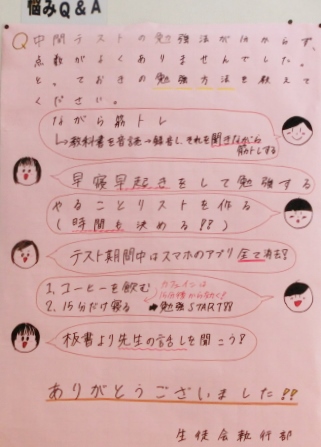 悩みQ&A
Q中間テストの勉強法が分からず、
点数がよくありませんでした。
とっておきの勉強方法を教えて
ください。
ながら筋トレ
↳教科書を音読→録音し、それを聞きながら
筋トレする
早寝早起きをして勉強する
やることリストを作る
(時間も決める!?)
テスト期間中はスマホのアプリ全て消去!
1.コーヒーを飲む
カフェインは
15分後から効く!
2.15分だけ寝る → 勉強START!!
板書より先生の話しを聞こう?
ありがとうございました!!
生徒会執行部